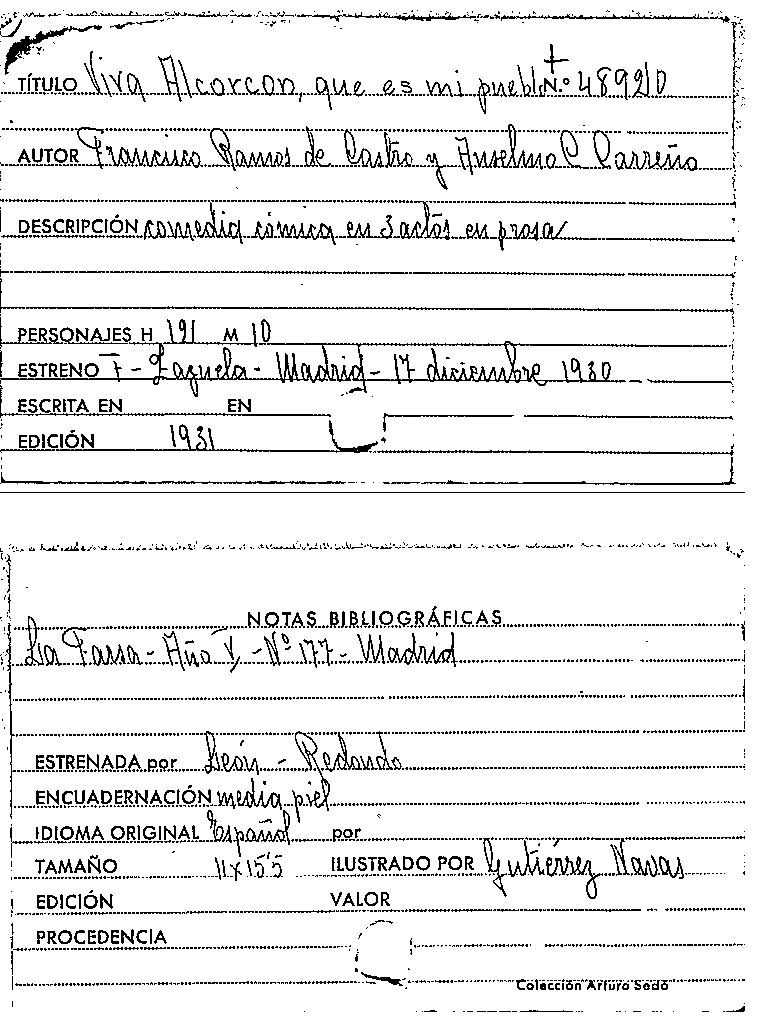 TÍTULO Viva Alcorcon, que es mi pueblo N.º 48920
AUTOR Francisco Ramos de Castro y Anselmo C Carreño
DESCRIPCIÓN comedia cómica en 3 actos en prosa
PERSONAJES H 191 M 10
ESTRENO T - Zarzuela - Madrid - 17 diciembre 1930
ESCRITA EN EN
EDICIÓN 1931
NOTAS BIBLIOGRÁFICAS
La Farsa - Año V, - Nº 177 - Madrid
ESTRENADA por León - Redondo
ENCUADERNACIÓN media piel
IDIOMA ORIGINAL Español por
TAMAÑO 11 x 15'5 ILUSTRADO POR Gutiérrez Navas
EDICIÓN VALOR
PROCEDENCIA
Colección Arturo Sedó